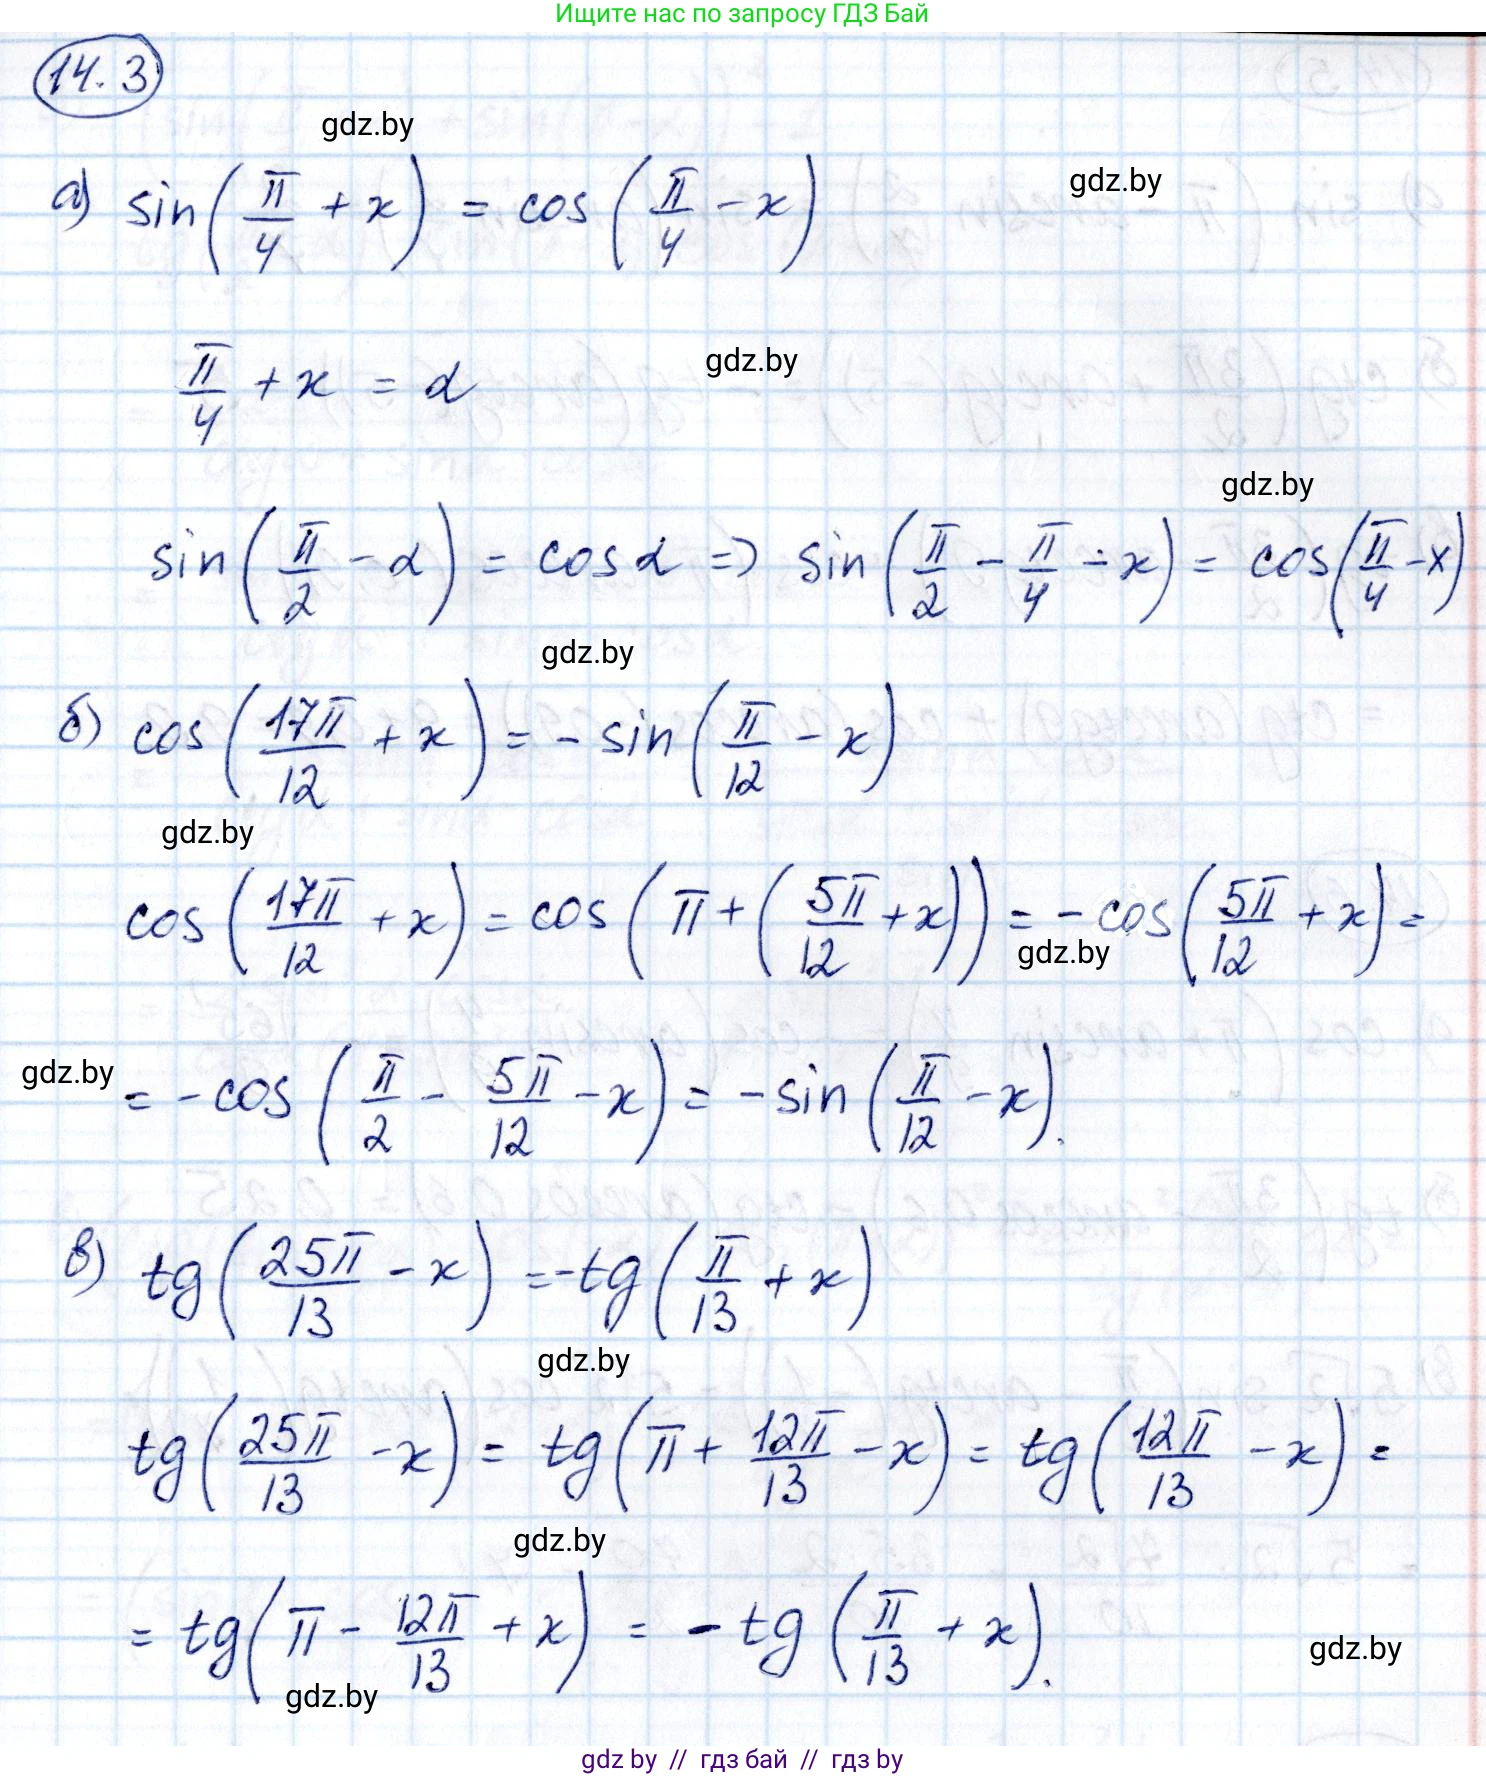 Ищите нас по запросу ГДЗ Бай
14.3
gdz.by
gdz.by
а) sin(π/4 + x) = cos(π/4 - x)
gdz.by
π/4 + x = α
gdz.by
sin(π/2 - α) = cos α => sin(π/2 - π/4 - x) = cos(π/4 - x)
gdz.by
б) cos(17π/12 + x) = - sin(π/12 - x)
gdz.by
cos(17π/12 + x) = cos(π + (5π/12 + x)) = - cos(5π/12 + x) =
gdz.by
gdz.by
= - cos(π/2 - 5π/12 - x) = - sin(π/12 - x).
в) tg(25π/13 - x) = - tg(π/13 + x)
gdz.by
tg(25π/13 - x) = tg(π + 12π/13 - x) = tg(12π/13 - x) =
gdz.by
= tg(π - 12π/13 + x) = - tg(π/13 + x).
gdz.by
gdz.by
gdz by // гдз бай // гдз by